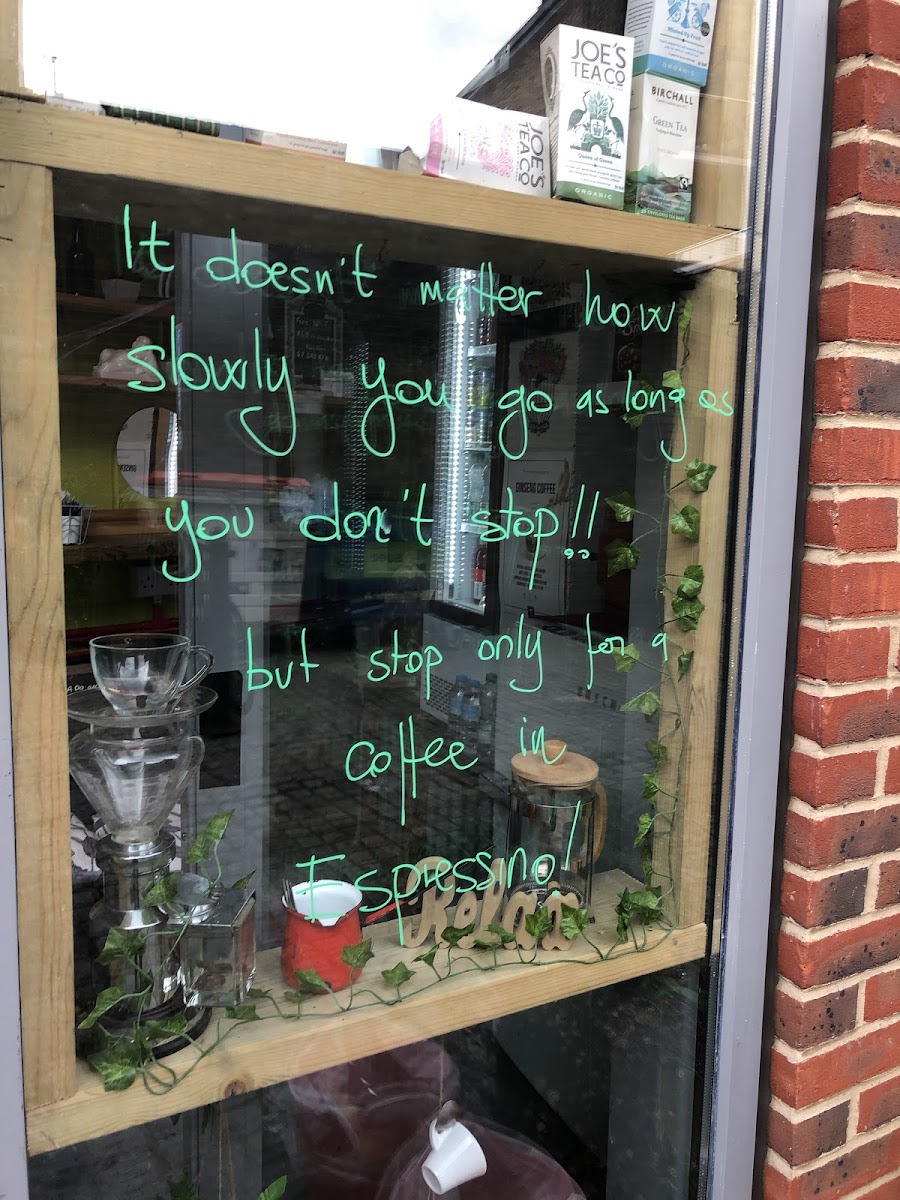 JOE'S
TEA CO
Queens of Green
ORGANIC
JOE'S
TEA CO
ORGANIC
BIRCHALL
GREEN TEA
It doesn't matter how
slowly you go as long as
you don't stop!!
but stop only for a
coffee in
Espressino!
GINSENG COFFEE
Relax